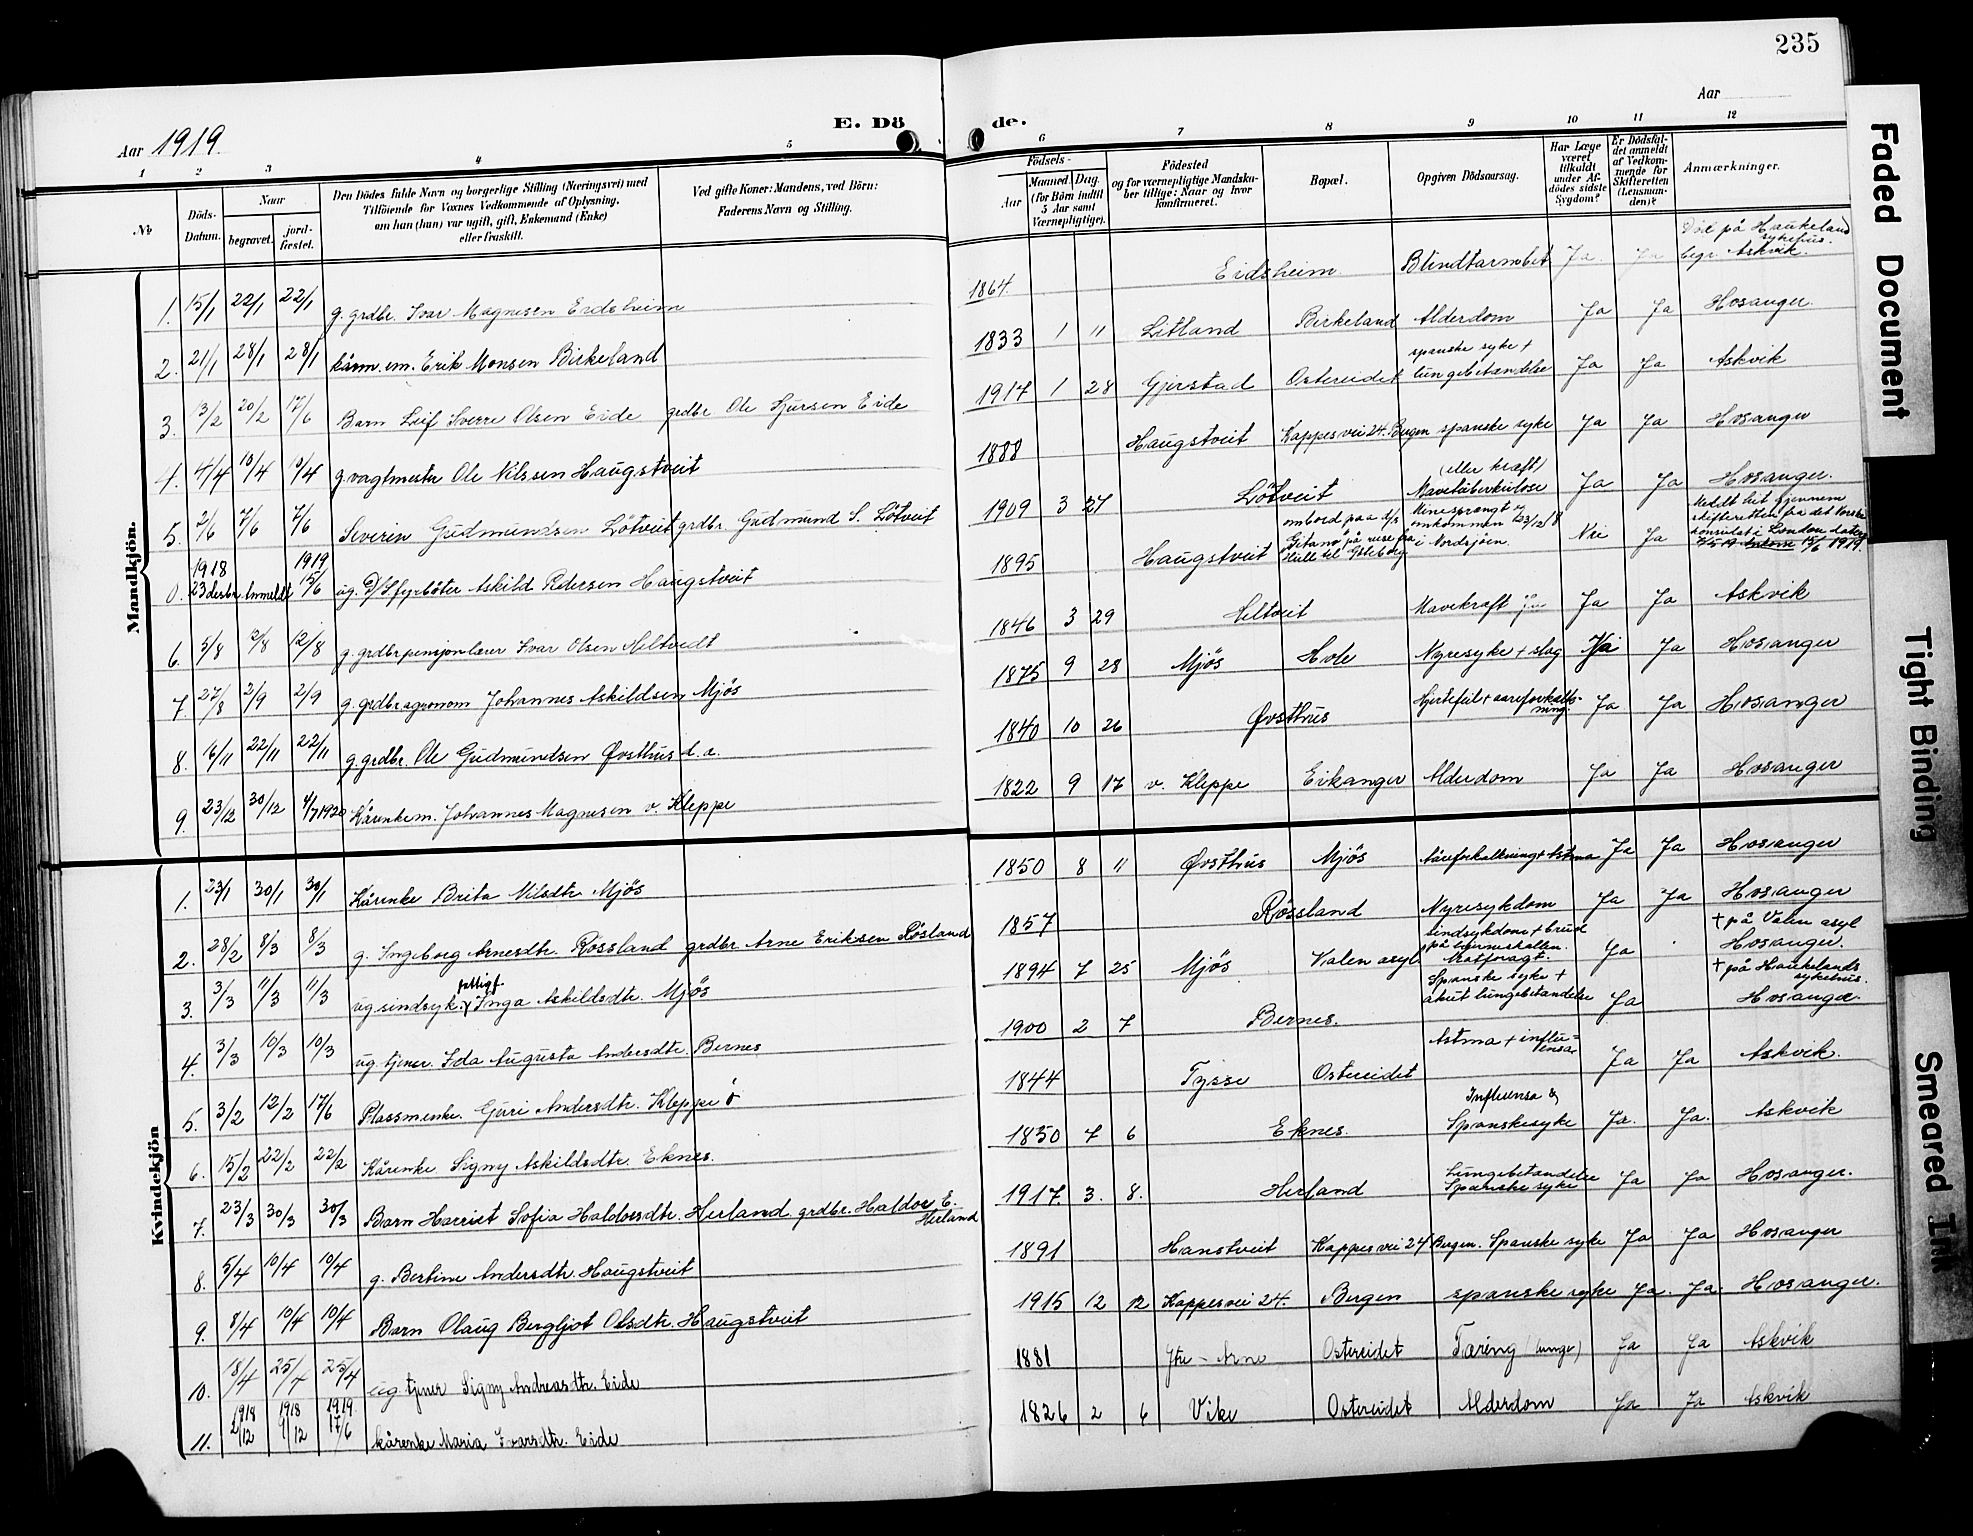 235
Aar 1919.
E. Dö de.
Aar
1 2 3 4 5 6 7 8 9 10 11 12
No
Döds-Datum.
Naar
begravet.
jord-fæstet.
Den Dödes fulde Navn og borgerlige Stilling (Næringsvei) med
Tilföiende for Voxnes Vedkommende af Oplysning,
om han (hun) var ugift, gift, Enkemand (Enke)
eller fraskilt.
Ved gifte Koner: Mandens, ved Börn:
Faderens Navn og Stilling.
Födsels-
Aar
Maaned. Dag.
(for Börn indtil
5 Aar samt
Værnepligtige).
Födested
og for værnepligtige Mandskaber tillige: Naar og hvor
konfirmeret.
Bopæl.
Opgiven Dödsaarsag.
Har Læge
været
tilkaldt
under Af-
dödes sidste
Sygdom?
Er Dödsfal-
det anmeldt
af Vedkom-
mende for
Skifteretten
(Lensman-
den)?
Anmærkninger.
Mandkjön.
1. 15/1 22/1 22/1 g. grdbr. Ivar Magnesen Eidsheim 1864. Eidsheim Blindtarmbet. Ja. Ja Död på Haukeland sykehus. begr. Askvik.
2. 21/1 28/1 28/1 kårm. em. Erik Monsen Birkeland 1833 1 11 Litland Birkeland Alderdom Ja Ja Hosanger.
3. 13/2 20/2 17/6 Barn Leif Sverre Olsen Eide grdbr. Ole Sjursen Eide 1917 1 28 Gjerstad Ostereidet spanske syke + lungebetændelse Ja Ja Askvik
4. 4/4 13/4 13/4 g. vagtmester Ole Nilssen Haugstveit 1888 Haugstveit Kappesvei 24. Bergen spanske syke Ja Ja Hosanger
5. 2/6 7/6 7/6 Severin Gudmundsen Lötveit grdbr. Gudmund S. Lötveit 1909 3 27 Lötveit (eller kræft) Mavetuberkulose Ja Ja Hosanger.
0. 1918 23 desbr. Anmeldt 1919 15/6 ug. D/S fyrböter Askild Pedersen Haugstveit 1895 Haugstveit ombord paa d/s Gitano på reise fra Hull til Göteborg Minesprængt og omkommen 23/12 18 i Nordsjöen. Nei Ja Meldt hit gjennem skifteretten fra det Norske konsulat i London 15/6 1919.
6. 5/8 12/8 g. grdbr. pensjonlærer Ivar Olsen Meltvedt 1846 3 29 Meltveit Mavekræft Ja Ja Askvik
7. 27/8 2/9 2/9 g. grdbr. agronom Johannes Askildsen Mjös 1875 9 28 Mjös Hole Nyresyke + slag Ja Ja Hosanger
8. 16/11 22/11 22/11 g. grdbr. Ole Gudmundsen Øvsthus d. a. 1840 10 26 Øvsthus Hjertefeil + aareforkalkning. Ja Ja Hosanger
9. 23/12 30/12 4/7 1920 Kårenkem. Johannes Magnesen v. Kleppe 1822 9 17 v. Kleppe Eikanger Alderdom Ja Ja Hosanger
Kvindekjön
1. 23/1 30/1 30/1 Kårenke Brita Nilsdtr. Mjös 1850 8 11 Øvsthus Mjös Aareforkalkning + Astma Ja Ja Hosanger
2. 28/2 8/3 8/3 g. Ingeborg Arnesdtr. Rössland grdbr. Arne Eriksen Rösland 1857 Rössland Nyresykdom Ja Ja Hosanger
3. 3/3 11/3 11/3 ug. sindsyk. fattigf. Inga Askildsdtr. Mjös 1894 7 25 Mjös Valen asyl sindsykdom + brud på hjerneskallen. Matforagt. Ja + på Valen asyl Hosanger.
4. 3/3 10/3 10/3 ug. tjener. Ida Augusta Andersdtr. Bernes 1900 2 7 Bernes. Spanske syke + akut lungebetændelse Ja + på Haukelands sykehus. Hosanger.
5. 3/2 12/2 17/6 Plassmenke. Guri Andersdtr. Kleppe 1844 Tysse Ostereidet Astma + influensa Ja Ja Askvik.
6. 15/2 22/2 22/2 Kårenke Signy Askildsdtr. Eknes. 1850 7 6 Eknes. Influensa & Spanskesyke Ja. Ja. Askvik
7. 23/3 30/3 30/3 Barn Harriet Sofia Haldorsdtr. Herland grdbr. Haldor E. Herland 1917. 3. 8. Herland Lungebetændelse Spanske syke Ja Ja Hosanger.
8. 5/4 10/4 10/4 g. Bertine Andersdtr. Haugstveit 1891 Hanstveit Kappesvei 24 Bergen. Spanske syke Ja Ja Hosanger
9. 8/4 10/4 10/4 Barn Olaug Bergljot Olsdtr. Haugstveit 1915 12 12 Kappesvei 24. Bergen spanske syke Ja. Ja. Hosanger.
10. 18/4 25/4 25/4 ug. tjener Signy Andreasdtr. Eide 1881 Ytre-Arne Ostereidet Tæring (lunge) Ja Ja Askvik
11. 1918 2/12 1918 9/12 1919 17/6 kårenke Maria Ivarsdtr. Eide 1826 2 6 Vike Ostereidet Alderdom Ja Ja Askvik
Faded Document
Tight Binding
Smeared Ink